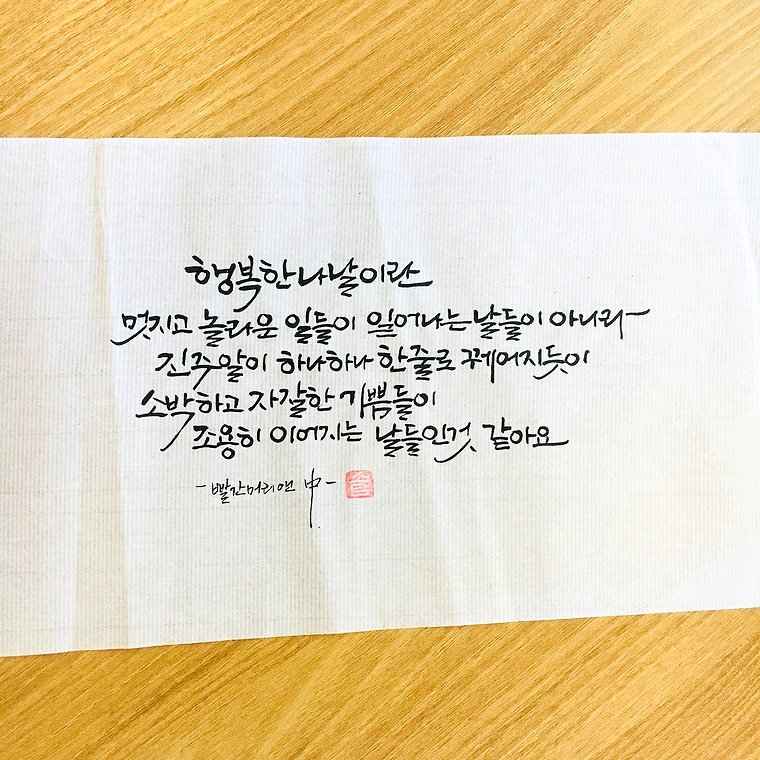 행복한 나날이란
멋지고 놀라운 일들이 일어나는 날들이 아니라
진주알이 하나하나 한줄로 꿰어지듯이
소박하고 자잘한 기쁨들이
조용히 이어지는 날들인것 같아요
- 빨간머리앤 中 -